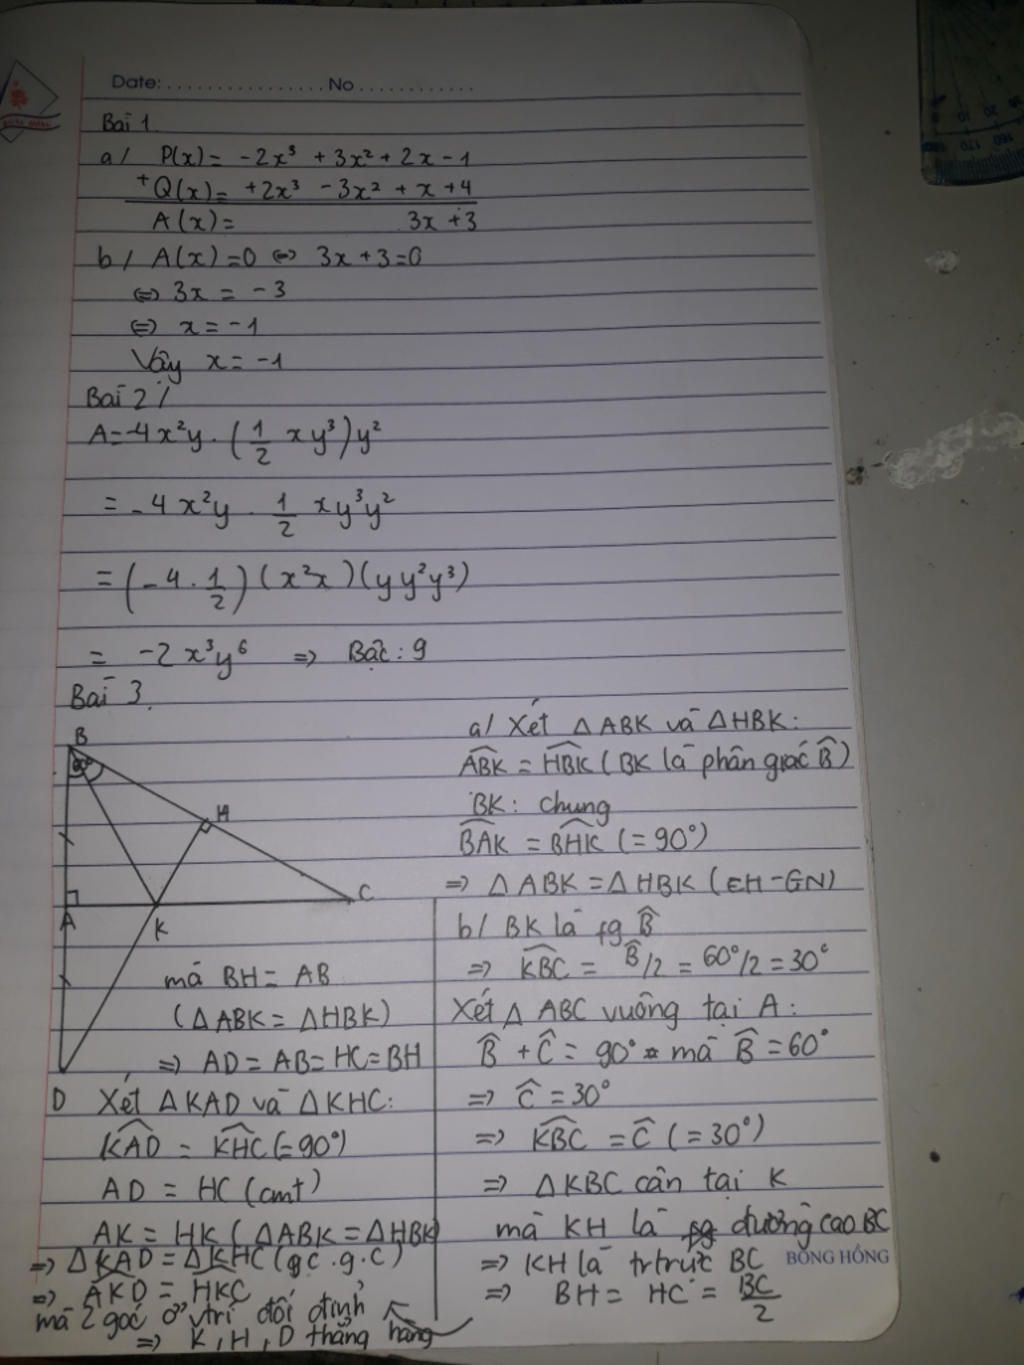 Date: ................ No ............
Bài 1.
a/ P(x) = -2x³ + 3x² + 2x - 1
+ Q(x) = +2x³ - 3x² + x + 4
A(x) = 3x + 3
b/ A(x) = 0 ⇔ 3x + 3 = 0
⇔ 3x = -3
⇔ x = -1
Vậy x = -1
Bài 2/
A = -4x²y . (1/2 xy³)y²
= -4x²y . 1/2 xy³y²
= (-4 . 1/2)(x²x)(yy²y³)
= -2x³y⁶ ⇒ Bậc: 9
Bài 3.
B
60°
H
A
K
C
D
a/ Xét △ABK và △HBK:
ABK = HBK (BK là phân giác B)
BK: chung
BAK = BHK (= 90°)
⇒ △ABK = △HBK (CH-GN)
b/ BK là fg B
⇒ KBC = B/2 = 60°/2 = 30°
Xét △ABC vuông tại A:
B + C = 90° mà B = 60°
⇒ C = 30°
⇒ KBC = C (= 30°)
⇒ △KBC cân tại K
mà KH là đường cao BC
⇒ KH là tr trực BC
⇒ BH = HC = BC/2
mà BH = AB
(△ABK = △HBK)
⇒ AD = AB = HC = BH
Xét △KAD và △KHC:
KAD = KHC (= 90°)
AD = HC (cmt)
AK = HK (△ABK = △HBK)
⇒ △KAD = △KHC (c.g.c)
⇒ AKD = HKC
mà 2 góc ở vtrí đối đỉnh
⇒ K, H, D thẳng hàng
BÔNG HỒNG